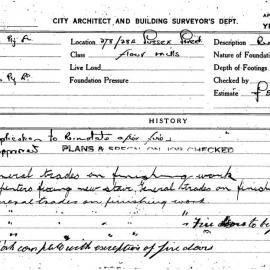 CITY ARCHITECT AND BUILDING SURVEYOR'S DEPT.
Location 278/282 Sussex Street Description
Class flour mills Nature of Foundation
Live Load Depth of Footings
Foundation Pressure Checked by
Estimate
plication to Reinstate after fire
approved PLANS & SPECN ON JOB CHECKED
neral trades on finishing work
penters fixing new stair. General trades on finish
neral trades on finishing work
" " " "
" " " " Fire doors to b
ork complete with exception of fire doors